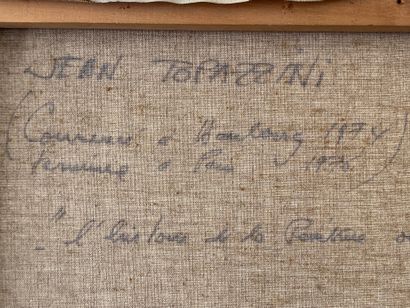 JEAN TOPAZZINI
(Commencé à Hambourg 1974
Terminé à Paris
"l'histoire de la Peinture